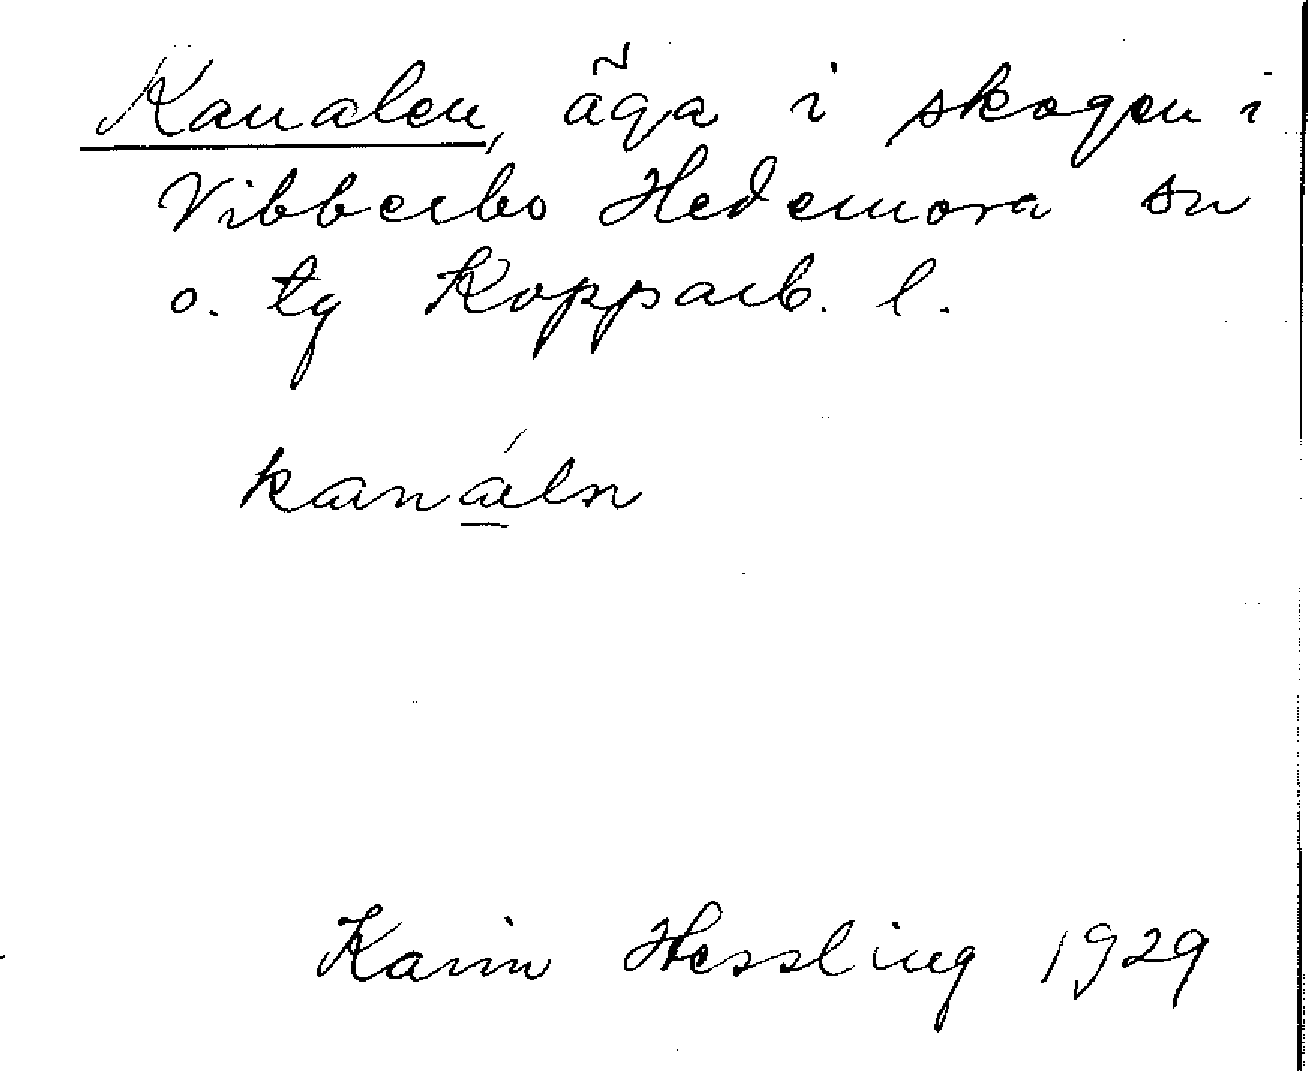 Kanalen, äga i skogen i
Vibberbo Hedemora sn
o. tg Kopparb. l.
kanáln
Karin Hessling 1929